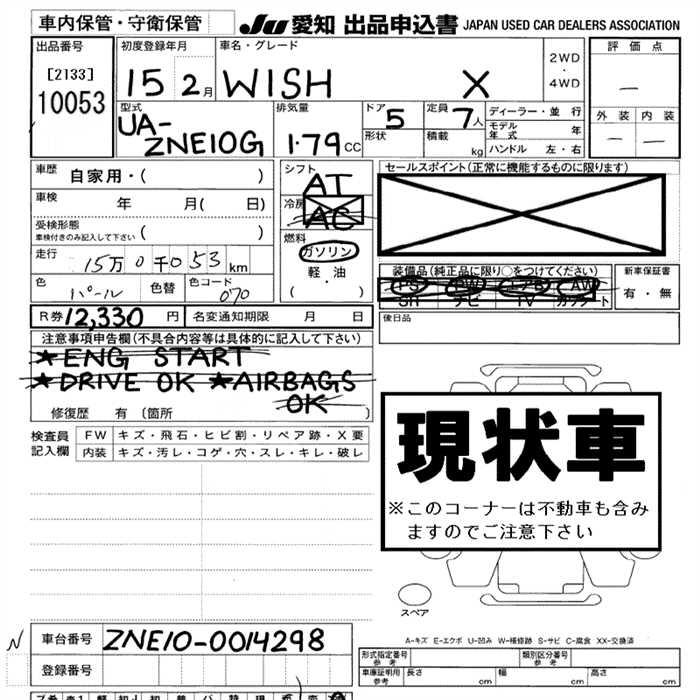 車内保管・守衛保管
JU 愛知 出品申込書 JAPAN USED CAR DEALERS ASSOCIATION
出品番号 [2133] 10053
初度登録年月 15 2月
車名・グレード WISH X
2WD・4WD
評価点 —
外装 — 内装 —
型式 UA-ZNE10G
排気量 1.79 CC
ドア 5 形状
定員 7人 積載 kg
ディーラー・並行
モデル年式 年
ハンドル 左・右
車歴 自家用・( )
車検 年 月( 日)
受検形態 車検付きのみ記入して下さい ( )
走行 15万0千053 km
色 パール 色替 色コード 070
シフト AT
冷房 AC
燃料 ガソリン
軽・油
( )
セールスポイント(正常に機能するものに限ります)
装備品(純正品に限り〇をつけてください)
PS PW エアB AW
SR ナビ TV カワシート
新車保証書
有・無
R券 12,330 円 名変通知期限 月 日
後日品
注意事項申告欄(不具合内容等は具体的に記入して下さい)
★ENG START
★DRIVE OK ★AIRBAGS
OK
修復歴 有 〔箇所 〕
検査員記入欄
FW キズ・飛石・ヒビ割・リペア跡・X要
内装 キズ・汚レ・コゲ・穴・スレ・キレ・破レ
現状車
※このコーナーは不動車も含み
ますのでご注意下さい
スペア
A-キズ E-エクボ U-凹み W-補修跡 S-サビ C-腐食 XX-交換済
N
車台番号 ZNE10-0014298
登録番号
形式指定番号 参考 類別区分番号 参考
車庫証明用 参考 長さ cm 幅 cm 高さ cm